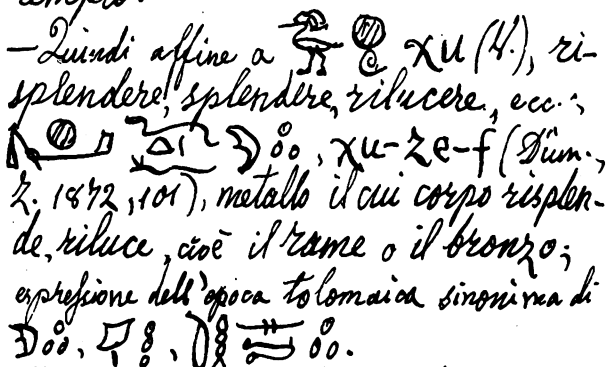 — Quindi affine a 𓅜 𓐍 χu (V.), ri-
splendere, splendere, rilucere, ecc.;
χu-ze-f (Düm.,
Z. 1872, 101), metallo il cui corpo risplen-
de, riluce, cioè il rame o il bronzo;
espressione dell'epoca tolomaica sinonima di